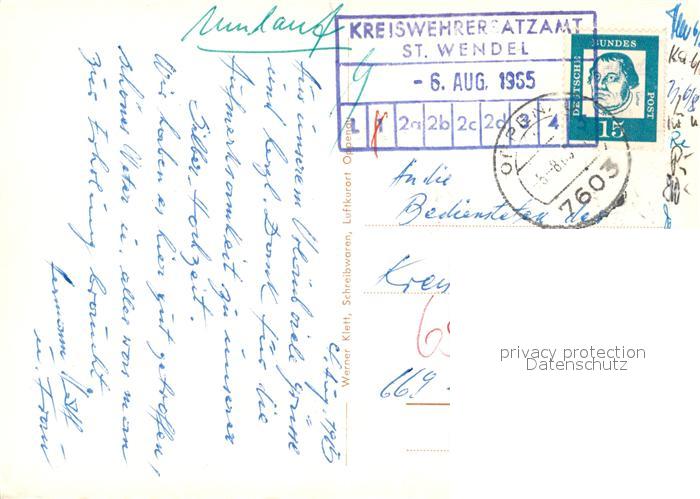 Umlauf
KREISWEHRERSATZAMT
ST. WENDEL
- 6. AUG. 1955
L 1 2a 2b 2c 2d 4
DEUTSCHE
BUNDES
POST
15
7603
An die
Bediensteten des
Kreis
669
Werner Klett, Schreibwaren, Luftkurort Oppenau
Aus unserem Urlaub viele Grüsse
und herzl. Dank für die
Aufmerksamkeit zu unserer
Silber-Hochzeit.
Wir haben es hier gut getroffen,
schönes Wetter u. alles was man
zur Erholung braucht.
Hermann
u. Frau
privacy protection
Datenschutz